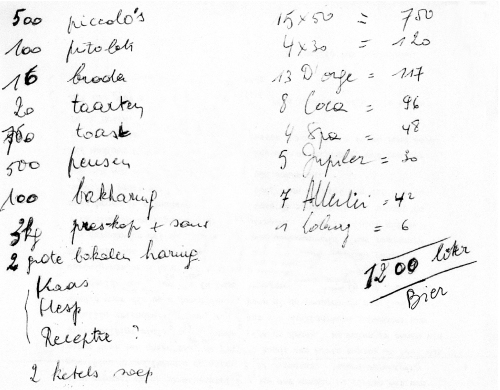 500 piccolo's
100 pitabek
16 broden
20 taarten
toast
500 pensen
100 bakharing
3kg preskop + saus
2 grote bokalen haring
Kaas
Hesp
Receptie ?
2 ketels soep
15 x 50 = 750
4 x 30 = 120
13 D'orge = 117
8 Coca = 96
4 Spa = 48
5 Jupiler = 30
7 = 42
1 = 6
1200 liter
Bier